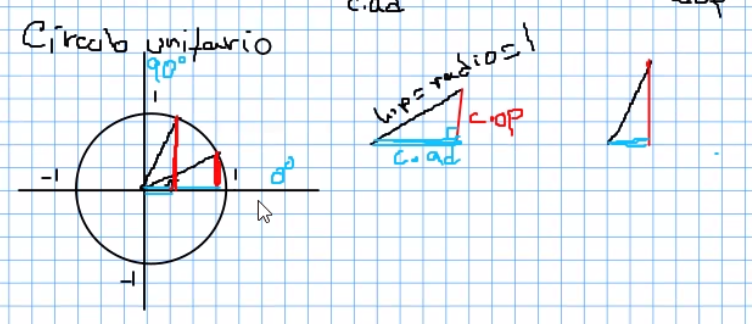 c.ad
Círculo unitario
90°
1
-1
1
0°
-1
hip = radio = 1
c.op
c.ad